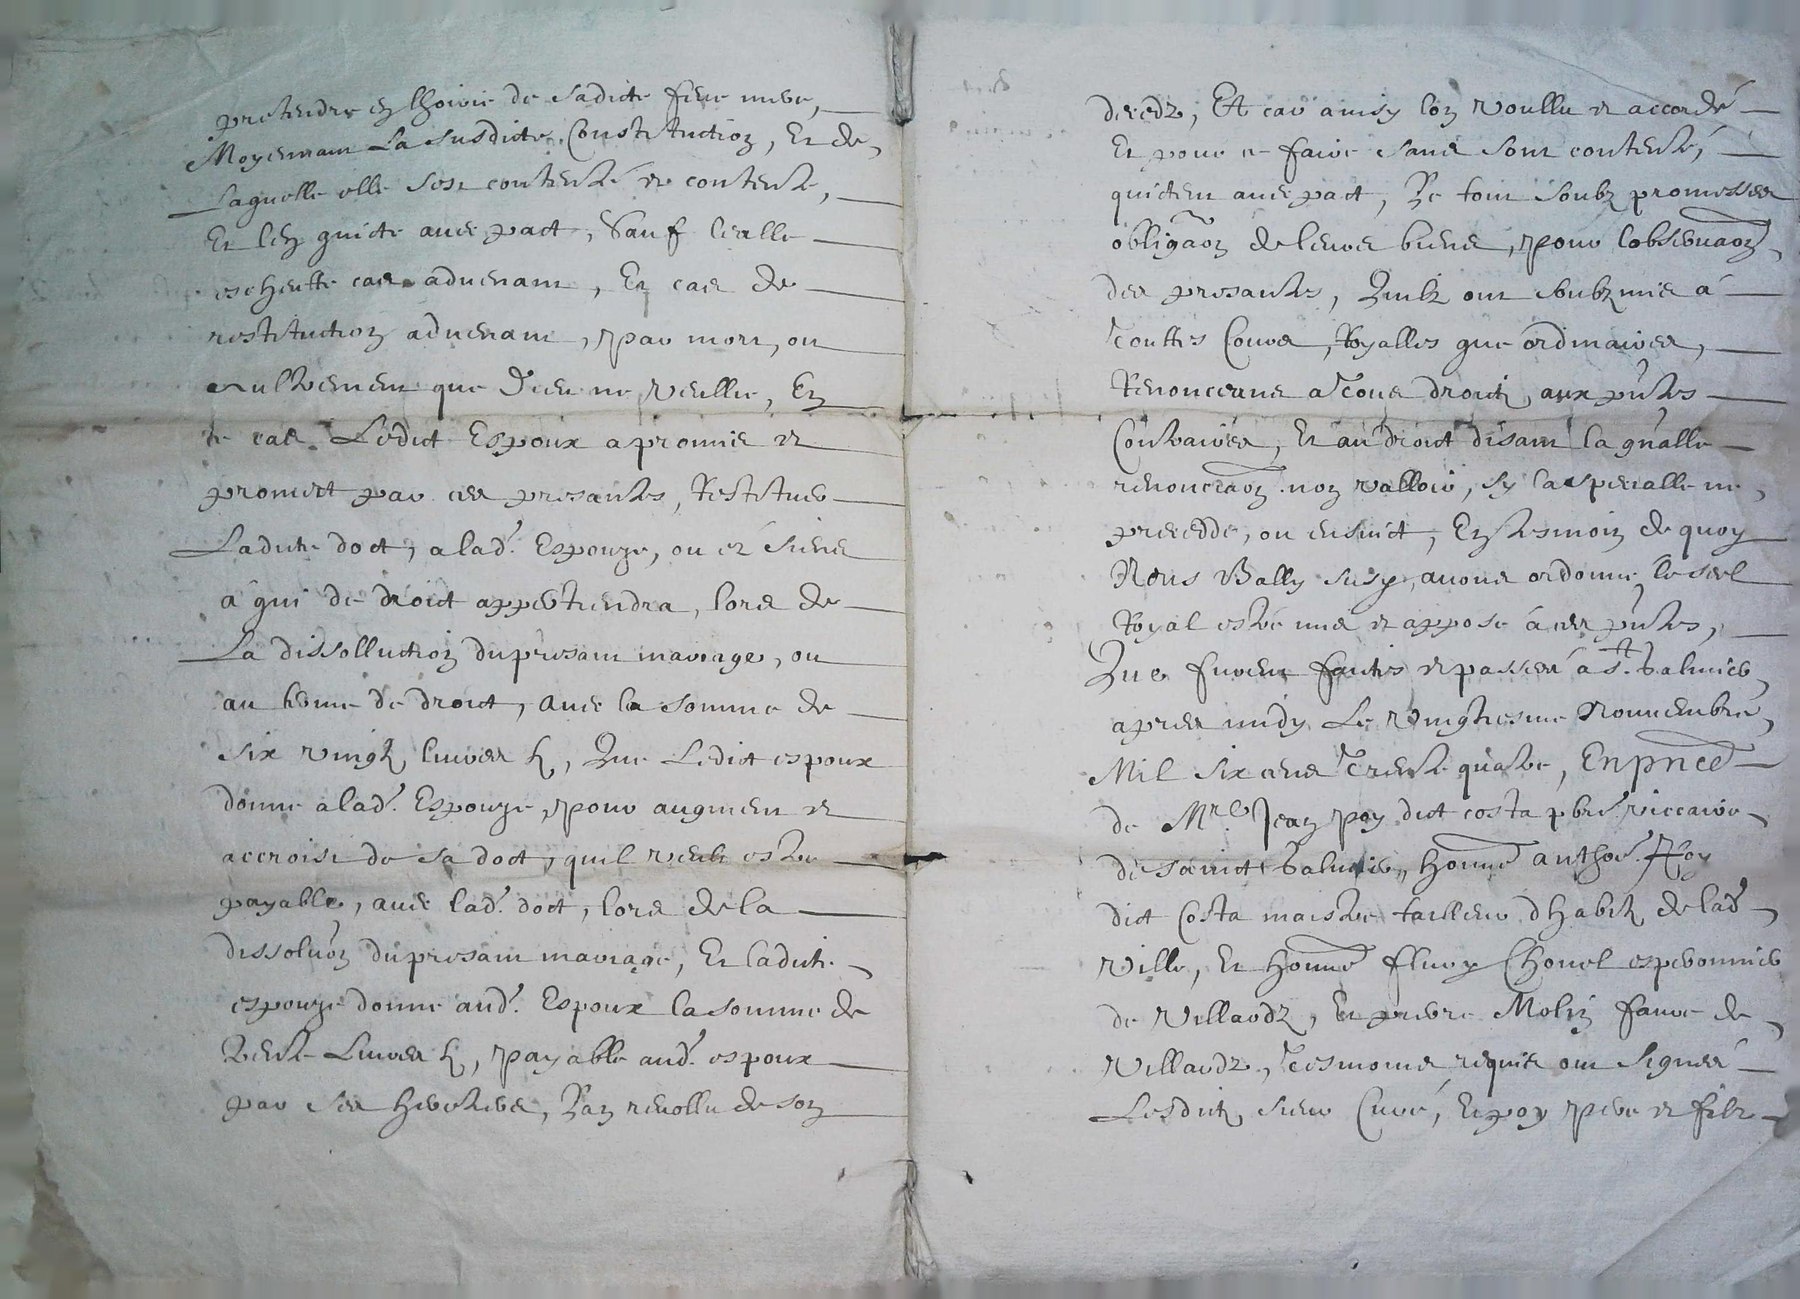 pretendre en lhoirie de sadicte feue mere,
Moyennant La susdicte Constitution, Et de
Laquelle elle sest contentée et contente,
Et len quicte avec pact, Sauf lealle
escheutte cas advenant, En cas de
restitution advenant, par mort, ou
aultrement que Dieu ne veullie, En
ce cas Ledict Espoux a promis et
promect par ces presantes, Restituer
Ladicte doct, a lad. Espouze, ou es siens
a qui de droict appertiendra, lors de
La dissollution du presant mariage, ou
au terme de droict, avec la somme de
six vingtz livres tz, Que Ledict espoux
donne a lad. Espouze, pour augment et
accrois de sa doct, quil veult estre
payable, avec lad. doct, lors de la
dissoluon du presant mariage, Et ladicte
espouze donne aud. Espoux la somme de
Trente Livres tz, payable aud. espoux
par ses heretiers, Lan revollu de son
decedz, Et car ainsy lon voullu et accordé
Et pour ce faire sans sont contente,
quictent avec pact, Le tout soubz promesses
obligaon de leurs biens, pour lobservaon
des presantes, Quilz ont soubzmis á
Touttes Cours, Royalles que ordinaires,
Renonceans a Tous droictz, aux pntes
Contraires, Et au droict disant la gnalle
renonceaon non valloir, sy la specialle ne
precedde, ou ensuict, En tesmoin de quoy
Nous Bally susd, avons ordonné le seel
Royal estre mis et apposé á ces pntes,
Que furent faictes et passees a st. Galmier
apres midy Le Vingtiesme Novembre
Mil six cens Trente quatre, En pnce
de Mre Jean poy dict costa pbre viccaire
de sainct Galmier, honne anthoe Poy
dict Costa maistre tailleur dhabitz de lad
Ville, Et honne fleury Chovel esperonnier
de Villardz, Et pierre Molin favre de
Villardz, Tesmoins requis ont signés
Lesdictz sieur Curé, Et poy pere et filz